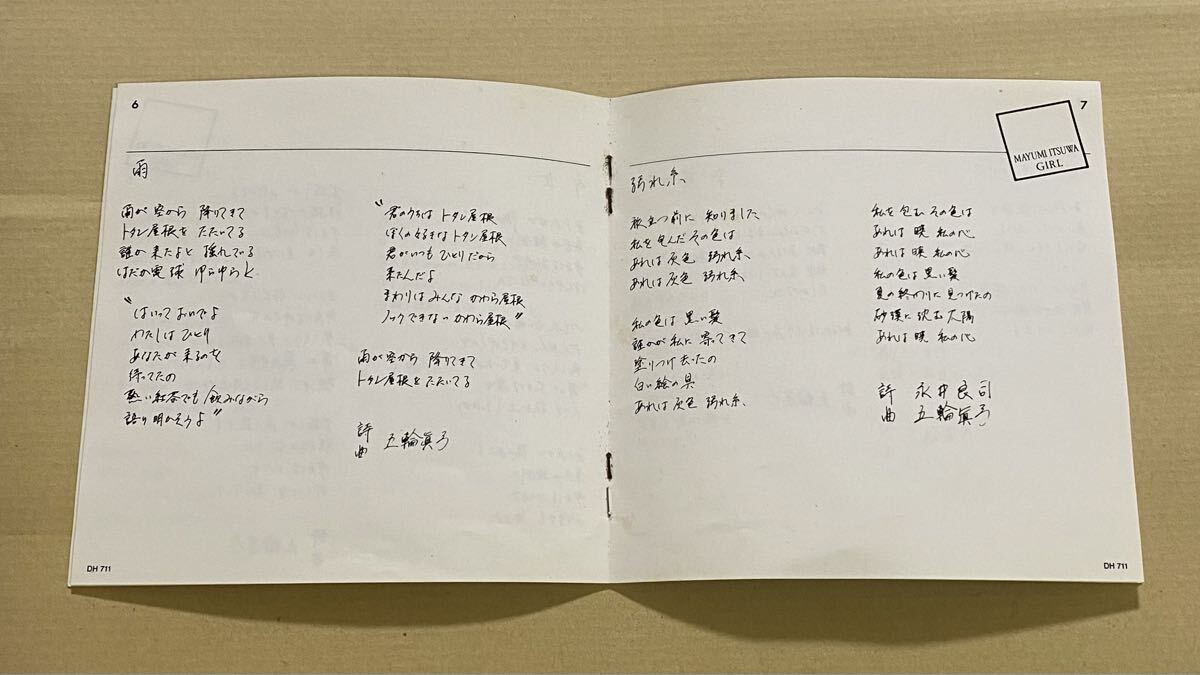 6
雨
雨が空から 降りてきて
トタン屋根を たたいてる
誰か来たよと 揺れている
はだか電球 ゆらゆらと
〝はいっておいでよ
わたしはひとり
あなたが来るのを
待ってたの
熱い紅茶でも 飲みながら
語り明かそうよ〟
〝君のうちは トタン屋根
ぼくの好きな トタン屋根
君がいつも ひとりだから
来たんだよ
まわりはみんな かわら屋根
ノックできない かわら屋根〟
雨が空から 降りてきて
トタン屋根を たたいてる
詩
曲 五輪真弓
DH 711
7
MAYUMI ITSUWA
GIRL
縺れ糸
旅立つ前に 知りました
私を包んだ その色は
あれは灰色 縺れ糸
あれは灰色 縺れ糸
私の色は 黒い髪
誰かが私に 寄ってきて
塗りつけ去ったの
白い絵の具
あれは灰色 縺れ糸
私を包む その色は
あれは 暁 私の心
あれは 暁 私の心
私の色は 黒い髪
夏の終わりに 見つけたの
砂漠に沈む 太陽
あれは 暁 私の心
詩 永井良司
曲 五輪眞弓
DH 711